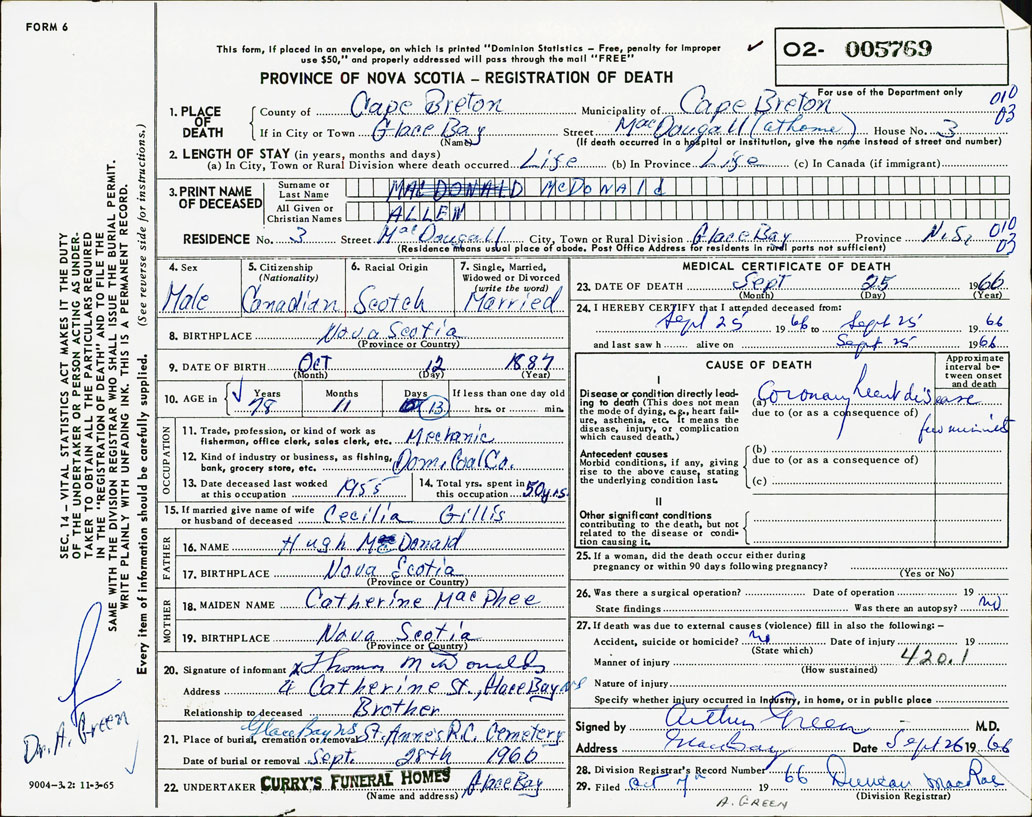 FORM 6
This form, if placed in an envelope, on which is printed "Dominion Statistics – Free, penalty for improper
use $50," and properly addressed will pass through the mail "FREE"
✓ O2- 005769
For use of the Department only
PROVINCE OF NOVA SCOTIA – REGISTRATION OF DEATH
010
03
1. PLACE OF DEATH
County of Cape Breton Municipality of Cape Breton
If in City or Town Glace Bay Street MacDougall (at home) House No. 3
(Name) (If death occurred in a hospital or institution, give the name instead of street and number)
2. LENGTH OF STAY (in years, months and days)
(a) In City, Town or Rural Division where death occurred Life (b) In Province Life (c) In Canada (if immigrant)
3. PRINT NAME OF DECEASED
Surname or Last Name MACDONALD McDonald
All Given or Christian Names ALLEN
RESIDENCE No. 3 Street MacDougall City, Town or Rural Division Glace Bay Province N.S. 010
03
(Residence means usual place of abode. Post Office Address for residents in rural parts not sufficient)
4. Sex
Male
5. Citizenship
(Nationality)
Canadian
6. Racial Origin
Scotch
7. Single, Married,
Widowed or Divorced
(write the word)
Married
8. BIRTHPLACE Nova Scotia
(Province or Country)
9. DATE OF BIRTH Oct 12 1887
(Month) (Day) (Year)
10. AGE in Years Months Days If less than one day old
78 11 13 hrs. or min.
OCCUPATION
11. Trade, profession, or kind of work as
fisherman, office clerk, sales clerk, etc. Mechanic
12. Kind of industry or business, as fishing,
bank, grocery store, etc. Dom. Coal Co.
13. Date deceased last worked
at this occupation 1955
14. Total yrs. spent in
this occupation 50 yrs.
15. If married give name of wife
or husband of deceased Cecilia Gillis
FATHER
16. NAME Hugh McDonald
17. BIRTHPLACE Nova Scotia
(Province or Country)
MOTHER
18. MAIDEN NAME Catherine MacPhee
19. BIRTHPLACE Nova Scotia
(Province or Country)
20. Signature of informant x Thomas McDonald
Address 4 Catherine St., Glace Bay NS
Relationship to deceased Brother
Glace Bay NS
21. Place of burial, cremation or removal St. Anne's R.C. Cemetery
Date of burial or removal Sept. 28th 1966
22. UNDERTAKER CURRY'S FUNERAL HOMES Glace Bay
(Name and address)
MEDICAL CERTIFICATE OF DEATH
23. DATE OF DEATH Sept 25 1966
(Month) (Day) (Year)
24. I HEREBY CERTIFY that I attended deceased from:
Sept 25 1966 to Sept 25 1966
and last saw h alive on Sept 25 1966
CAUSE OF DEATH
Approximate
interval be-
tween onset
and death
I
Disease or condition directly lead-
ing to death (This does not mean
the mode of dying, e.g., heart fail-
ure, asthenia, etc. It means the
disease, injury, or complication
which caused death.)
(a) Coronary heart disease
due to (or as a consequence of)
few minutes
Antecedent causes
Morbid conditions, if any, giving
rise to the above cause, stating
the underlying condition last.
(b)
due to (or as a consequence of)
(c)
II
Other significant conditions
contributing to the death, but not
related to the disease or condi-
tion causing it.
25. If a woman, did the death occur either during
pregnancy or within 90 days following pregnancy?
(Yes or No)
26. Was there a surgical operation? Date of operation 19
State findings Was there an autopsy? no
27. If death was due to external causes (violence) fill in also the following: –
Accident, suicide or homicide? no Date of injury 19
(State which)
Manner of injury 420.1
(How sustained)
Nature of injury
Specify whether injury occurred in industry, in home, or in public place
Signed by Arthur Green M.D.
Address Glace Bay Date Sept 26 1966
28. Division Registrar's Record Number
29. Filed Oct 7 19 66 Duncan MacRae
(Division Registrar)
A. GREEN
SEC. 14 – VITAL STATISTICS ACT MAKES IT THE DUTY
OF THE UNDERTAKER OR PERSON ACTING AS UNDER-
TAKER TO OBTAIN ALL THE PARTICULARS REQUIRED
IN THE "REGISTRATION OF DEATH" AND TO FILE THE
SAME WITH THE DIVISION REGISTRAR WHO SHALL ISSUE THE BURIAL PERMIT.
WRITE PLAINLY WITH UNFADING INK. THIS IS A PERMANENT RECORD.
Every item of information should be carefully supplied. (See reverse side for instructions.)
Dr. A. Green
9004-3.2: 11-3-65